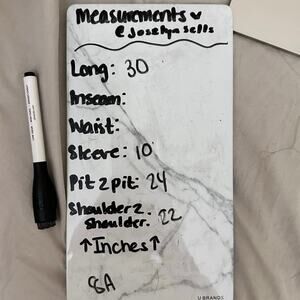 Measurements
@joselynsells
Long: 30
Inseam:
Waist:
Sleeve: 10
Pit 2 pit: 24
Shoulder 2
Shoulder. 22
↑Inches↑
U BRANDS